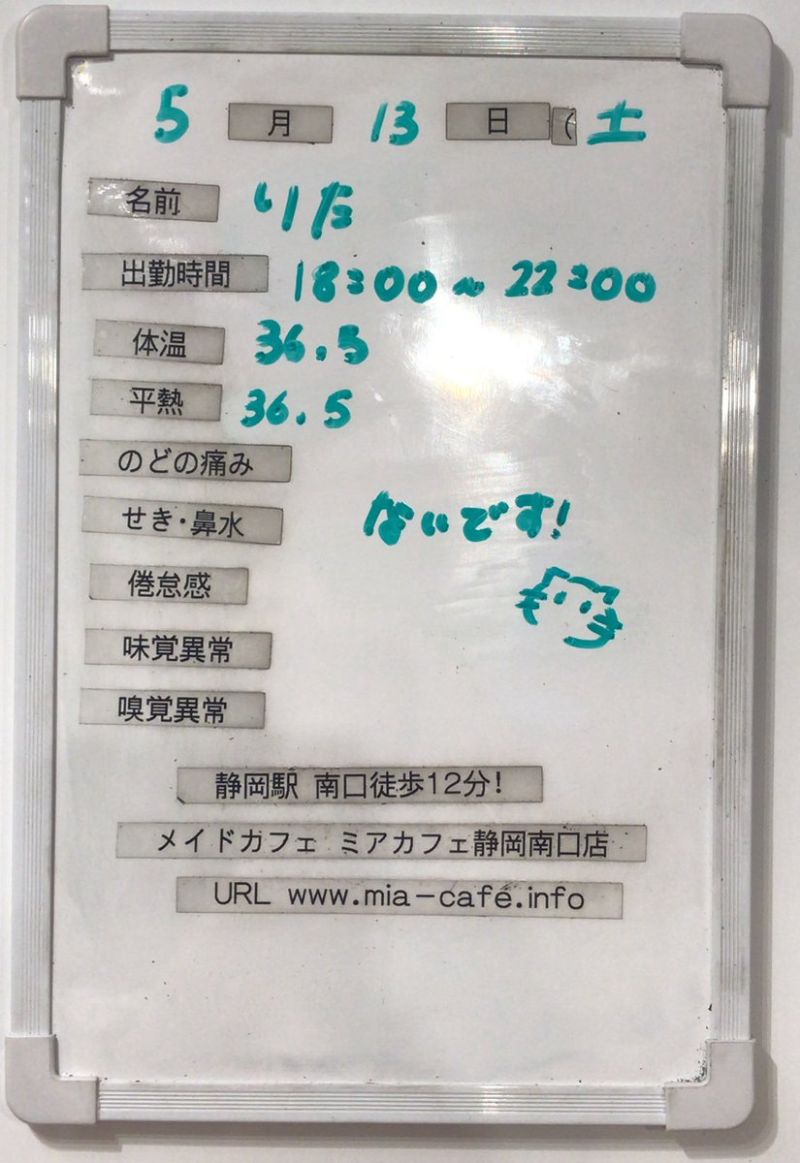 5 月 13 日 ( 土
名前 りた
出勤時間 18:00〜22:00
体温 36.5
平熱 36.5
のどの痛み
せき・鼻水 ないです!
倦怠感
味覚異常
嗅覚異常
静岡駅 南口徒歩12分!
メイドカフェ ミアカフェ静岡南口店
URL www.mia-cafe.info